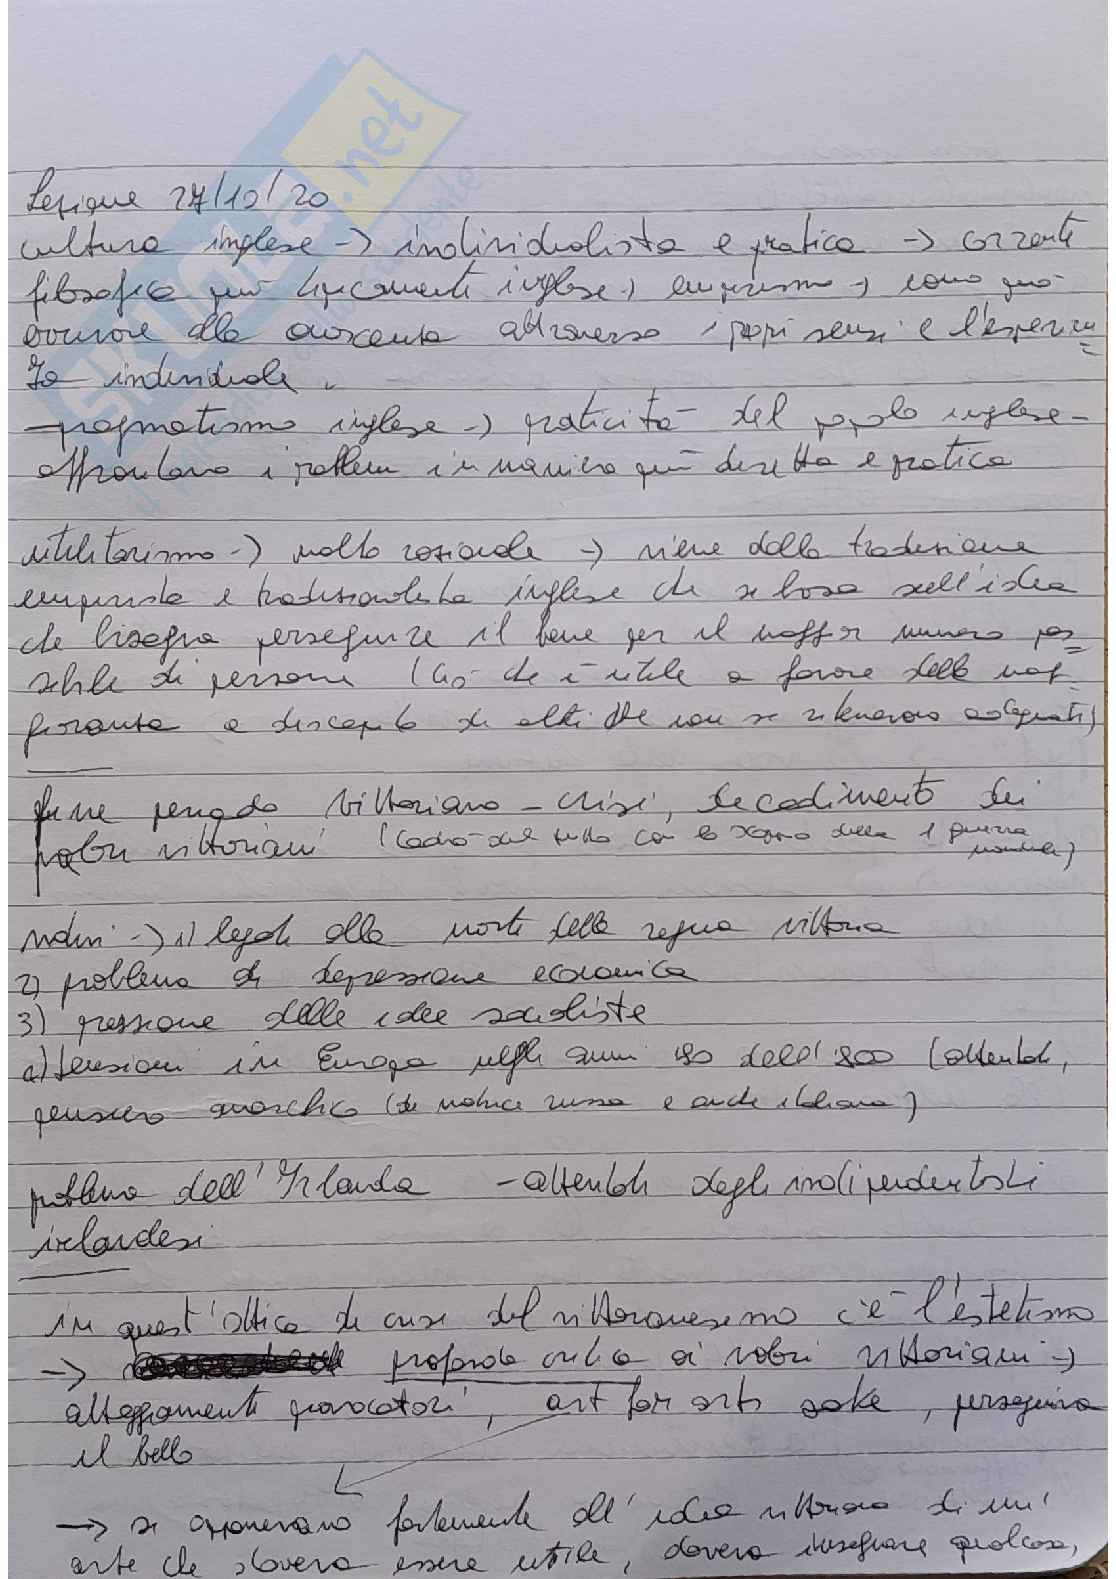 Lezione 27/10/20
cultura inglese -> individualista e pratica -> corrente
filosofica più tipicamente inglese -> empirismo -> uomo può
arrivare alla conoscenza attraverso i propri sensi e l'esperien=
za individuale.
-pragmatismo inglese -> praticità del popolo inglese -
affrontano i problemi in maniera più diretta e pratica
utilitarismo -> molto razionale -> viene dalla tradizione
empirista e tradizionalista inglese che si basa sull'idea
che bisogna perseguire il bene per il maggior numero pos=
sibile di persone (ciò che è utile a favore della mag-
gioranza a discapito di altri che non si ritenevano adeguati)
fine periodo vittoriano - crisi, decadimento dei
valori vittoriani (cadrà del tutto con lo scoppio della 1 guerra
mondiale)
motivi -> 1) legati alla morte della regina vittoria
2) problema di depressione economica
3) pressione delle idee socialiste
a) tensioni in Europa negli anni 80 dell'800 (attentati,
pensiero anarchico (di matrice russa e anche italiana)
problema dell'Irlanda - attentati degli indipendentisti
irlandesi
in quest'ottica di crisi del vittorianesimo c'è l'estetismo
-> profonda critica ai valori vittoriani ->
atteggiamenti provocatori, art for arts sake, perseguiva
il bello
-> si opponevano fortemente all'idea vittoriana di un'
arte che doveva essere utile, doveva insegnare qualcosa,
SKUOLA.net